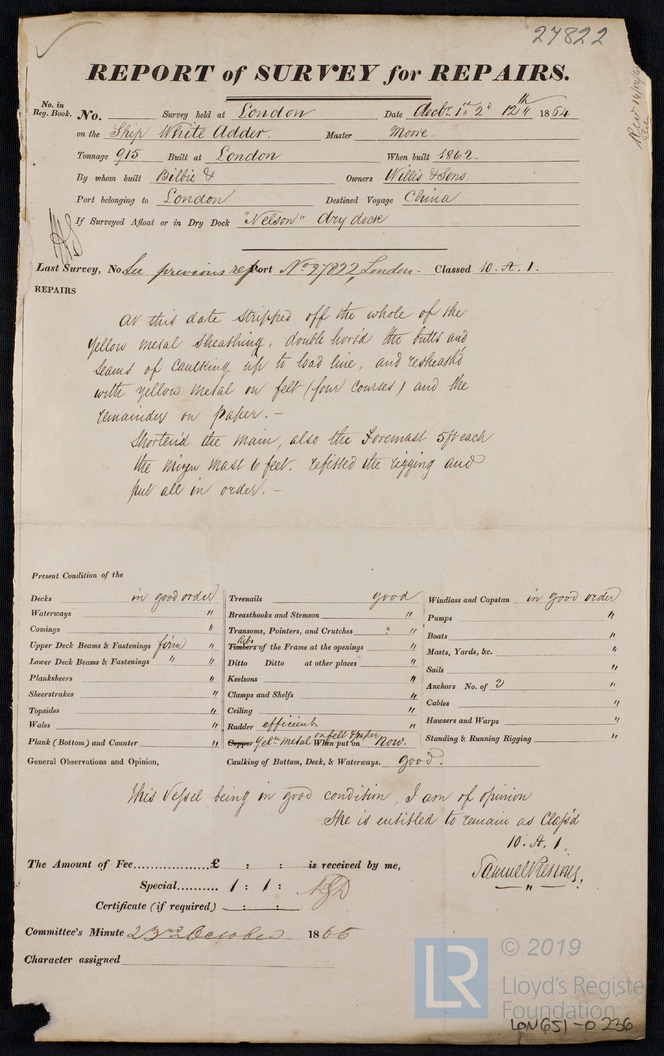 27822
REPORT of SURVEY for REPAIRS.
No. in Reg. Book. No. Survey held at London Date Decbr. 1st 2d 12th 1864
on the Ship White Adder. Master Moore.
Tonnage 915 Built at London When built 1862.
By whom built Bilbie & Owners Willis & Sons.
Port belonging to London Destined Voyage China
If Surveyed Afloat or in Dry Dock "Nelson" dry dock
Last Survey, No. See previous report Port No 27822, London. Classed 10. A. 1.
REPAIRS
At this date stripped off the whole of the
Yellow metal sheathing, double hors'd the butts and
seams of caulking up to load line, and resheath'd
with yellow metal on felt (four courses) and the
remainder on paper. -
Shorten'd the main, also the Foremast 5 ft each
the mizen mast 6 feet. refitted the rigging and
put all in order. -
Present Condition of the
Decks in good order
Waterways "
Comings "
Upper Deck Beams & Fastenings "
Lower Deck Beams & Fastenings " "
Planksheers "
Sheerstrakes "
Topsides "
Wales "
Plank (Bottom) and Counter "
General Observations and Opinion,
Treenails good
Breasthooks and Stemson "
Transoms, Pointers, and Crutches "
Ribs
Timbers of the Frame at the openings "
Ditto Ditto at other places "
Keelsons "
Clamps and Shelfs "
Ceiling "
Rudder efficient "
on felt & paper
Copper Yelw metal When put on Now.
Caulking of Bottom, Deck, & Waterways. good.
Windlass and Capstan in good order
Pumps "
Boats "
Masts, Yards, &c. "
Sails "
Anchors No. of 2 "
Cables "
Hawsers and Warps "
Standing & Running Rigging "
This Vessel being in good condition, I am of opinion
She is entitled to remain as Class'd
10. A. 1.
The Amount of Fee £ : : is received by me,
Samuel Presious.
Special 1 : 1 :
Certificate (if required) : :
Committee's Minute 23rd October 1866
Character assigned
© 2019
LR
Lloyd's Register
Foundation
LON651-0236